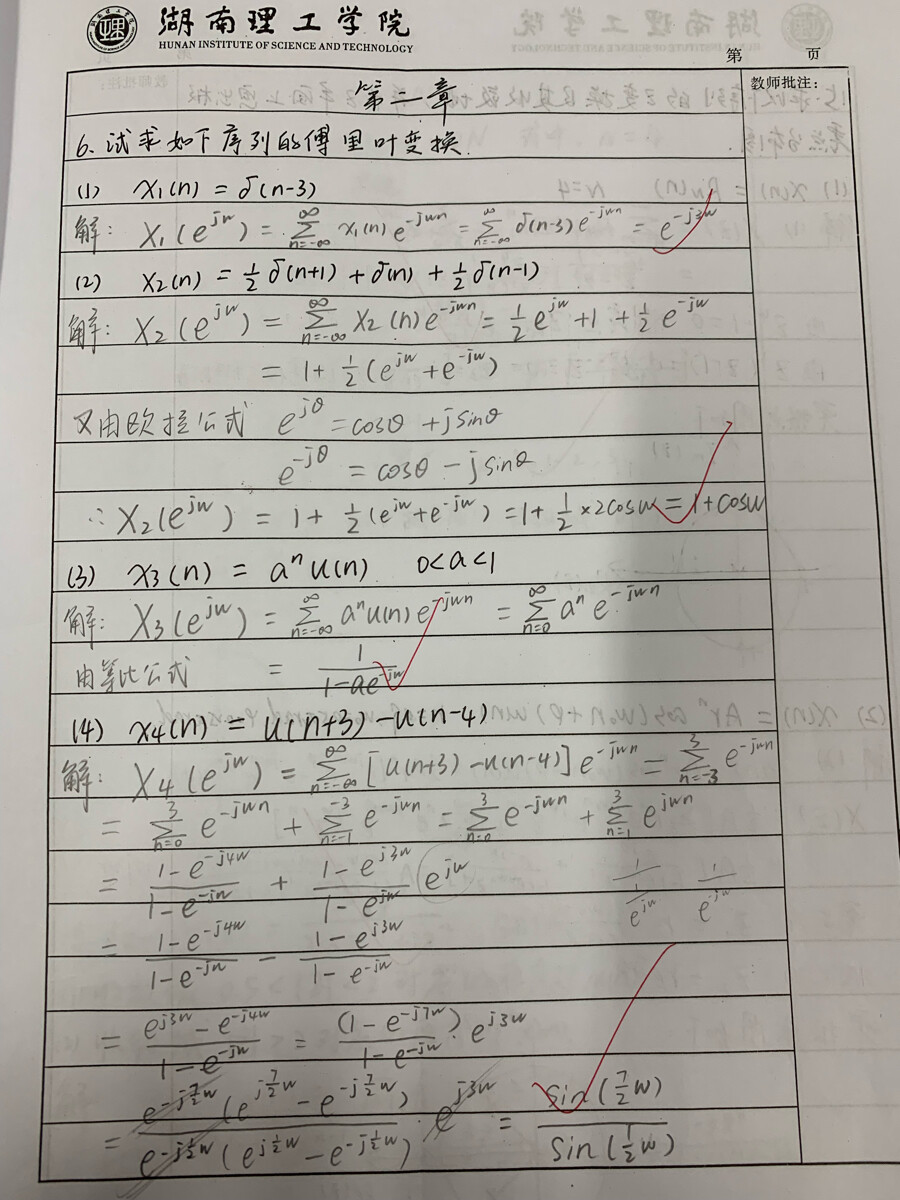 湖南理工学院
HUNAN INSTITUTE OF SCIENCE AND TECHNOLOGY
第 页
教师批注:
第二章
6、试求如下序列的傅里叶变换.
(1) x₁(n) = δ(n-3)
解: X₁(e^{jw}) = \sum_{n=-∞}^{∞} x₁(n) e^{-jwn} = \sum_{n=-∞}^{∞} δ(n-3) e^{-jwn} = e^{-j3w}
(2) x₂(n) = \frac{1}{2} δ(n+1) + δ(n) + \frac{1}{2} δ(n-1)
解: X₂(e^{jw}) = \sum_{n=-∞}^{∞} x₂(n) e^{-jwn} = \frac{1}{2} e^{jw} + 1 + \frac{1}{2} e^{-jw}
= 1 + \frac{1}{2} (e^{jw} + e^{-jw})
又由欧拉公式 e^{jθ} = cosθ + jsinθ
e^{-jθ} = cosθ - jsinθ
∴ X₂(e^{jw}) = 1 + \frac{1}{2} (e^{jw} + e^{-jw}) = 1 + \frac{1}{2} × 2cosw = 1 + cosw
(3) x₃(n) = aⁿ u(n) 0<a<1
解: X₃(e^{jw}) = \sum_{n=-∞}^{∞} aⁿ u(n) e^{-jwn} = \sum_{n=0}^{∞} aⁿ e^{-jwn}
由等比公式 = \frac{1}{1-ae^{-jw}}
(4) x₄(n) = u(n+3) - u(n-4)
解: X₄(e^{jw}) = \sum_{n=-∞}^{∞} [u(n+3) - u(n-4)] e^{-jwn} = \sum_{n=-3}^{3} e^{-jwn}
= \sum_{n=0}^{3} e^{-jwn} + \sum_{n=-1}^{-3} e^{-jwn} = \sum_{n=0}^{3} e^{-jwn} + \sum_{n=1}^{3} e^{jwn}
= \frac{1-e^{-j4w}}{1-e^{-jw}} + \frac{1-e^{j3w}}{1-e^{jw}} e^{jw} \frac{1}{\frac{1}{e^{jw}}} \frac{1}{e^{-jw}}
= \frac{1-e^{-j4w}}{1-e^{-jw}} - \frac{1-e^{j3w}}{1-e^{-jw}}
= \frac{e^{j3w} - e^{-j4w}}{1-e^{-jw}} = \frac{(1-e^{-j7w})}{1-e^{-jw}} · e^{j3w}
= \frac{e^{-j\frac{7}{2}w} (e^{j\frac{7}{2}w} - e^{-j\frac{7}{2}w})}{e^{-j\frac{1}{2}w} (e^{j\frac{1}{2}w} - e^{-j\frac{1}{2}w})} · e^{j3w} = \frac{sin(\frac{7}{2}w)}{sin(\frac{1}{2}w)}